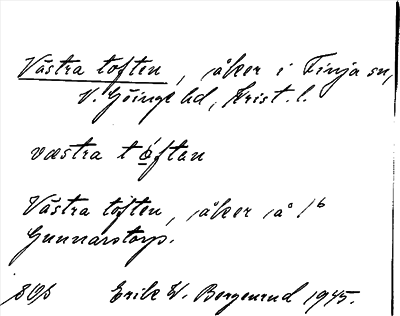 Västra toften, åker i Finja sn,
V. Göinge hd, Krist. l.
væstra tǫ́ftan
Västra toften, åker å 1⁶
Gunnarstorp.
Erik W. Bergenrud 1945.